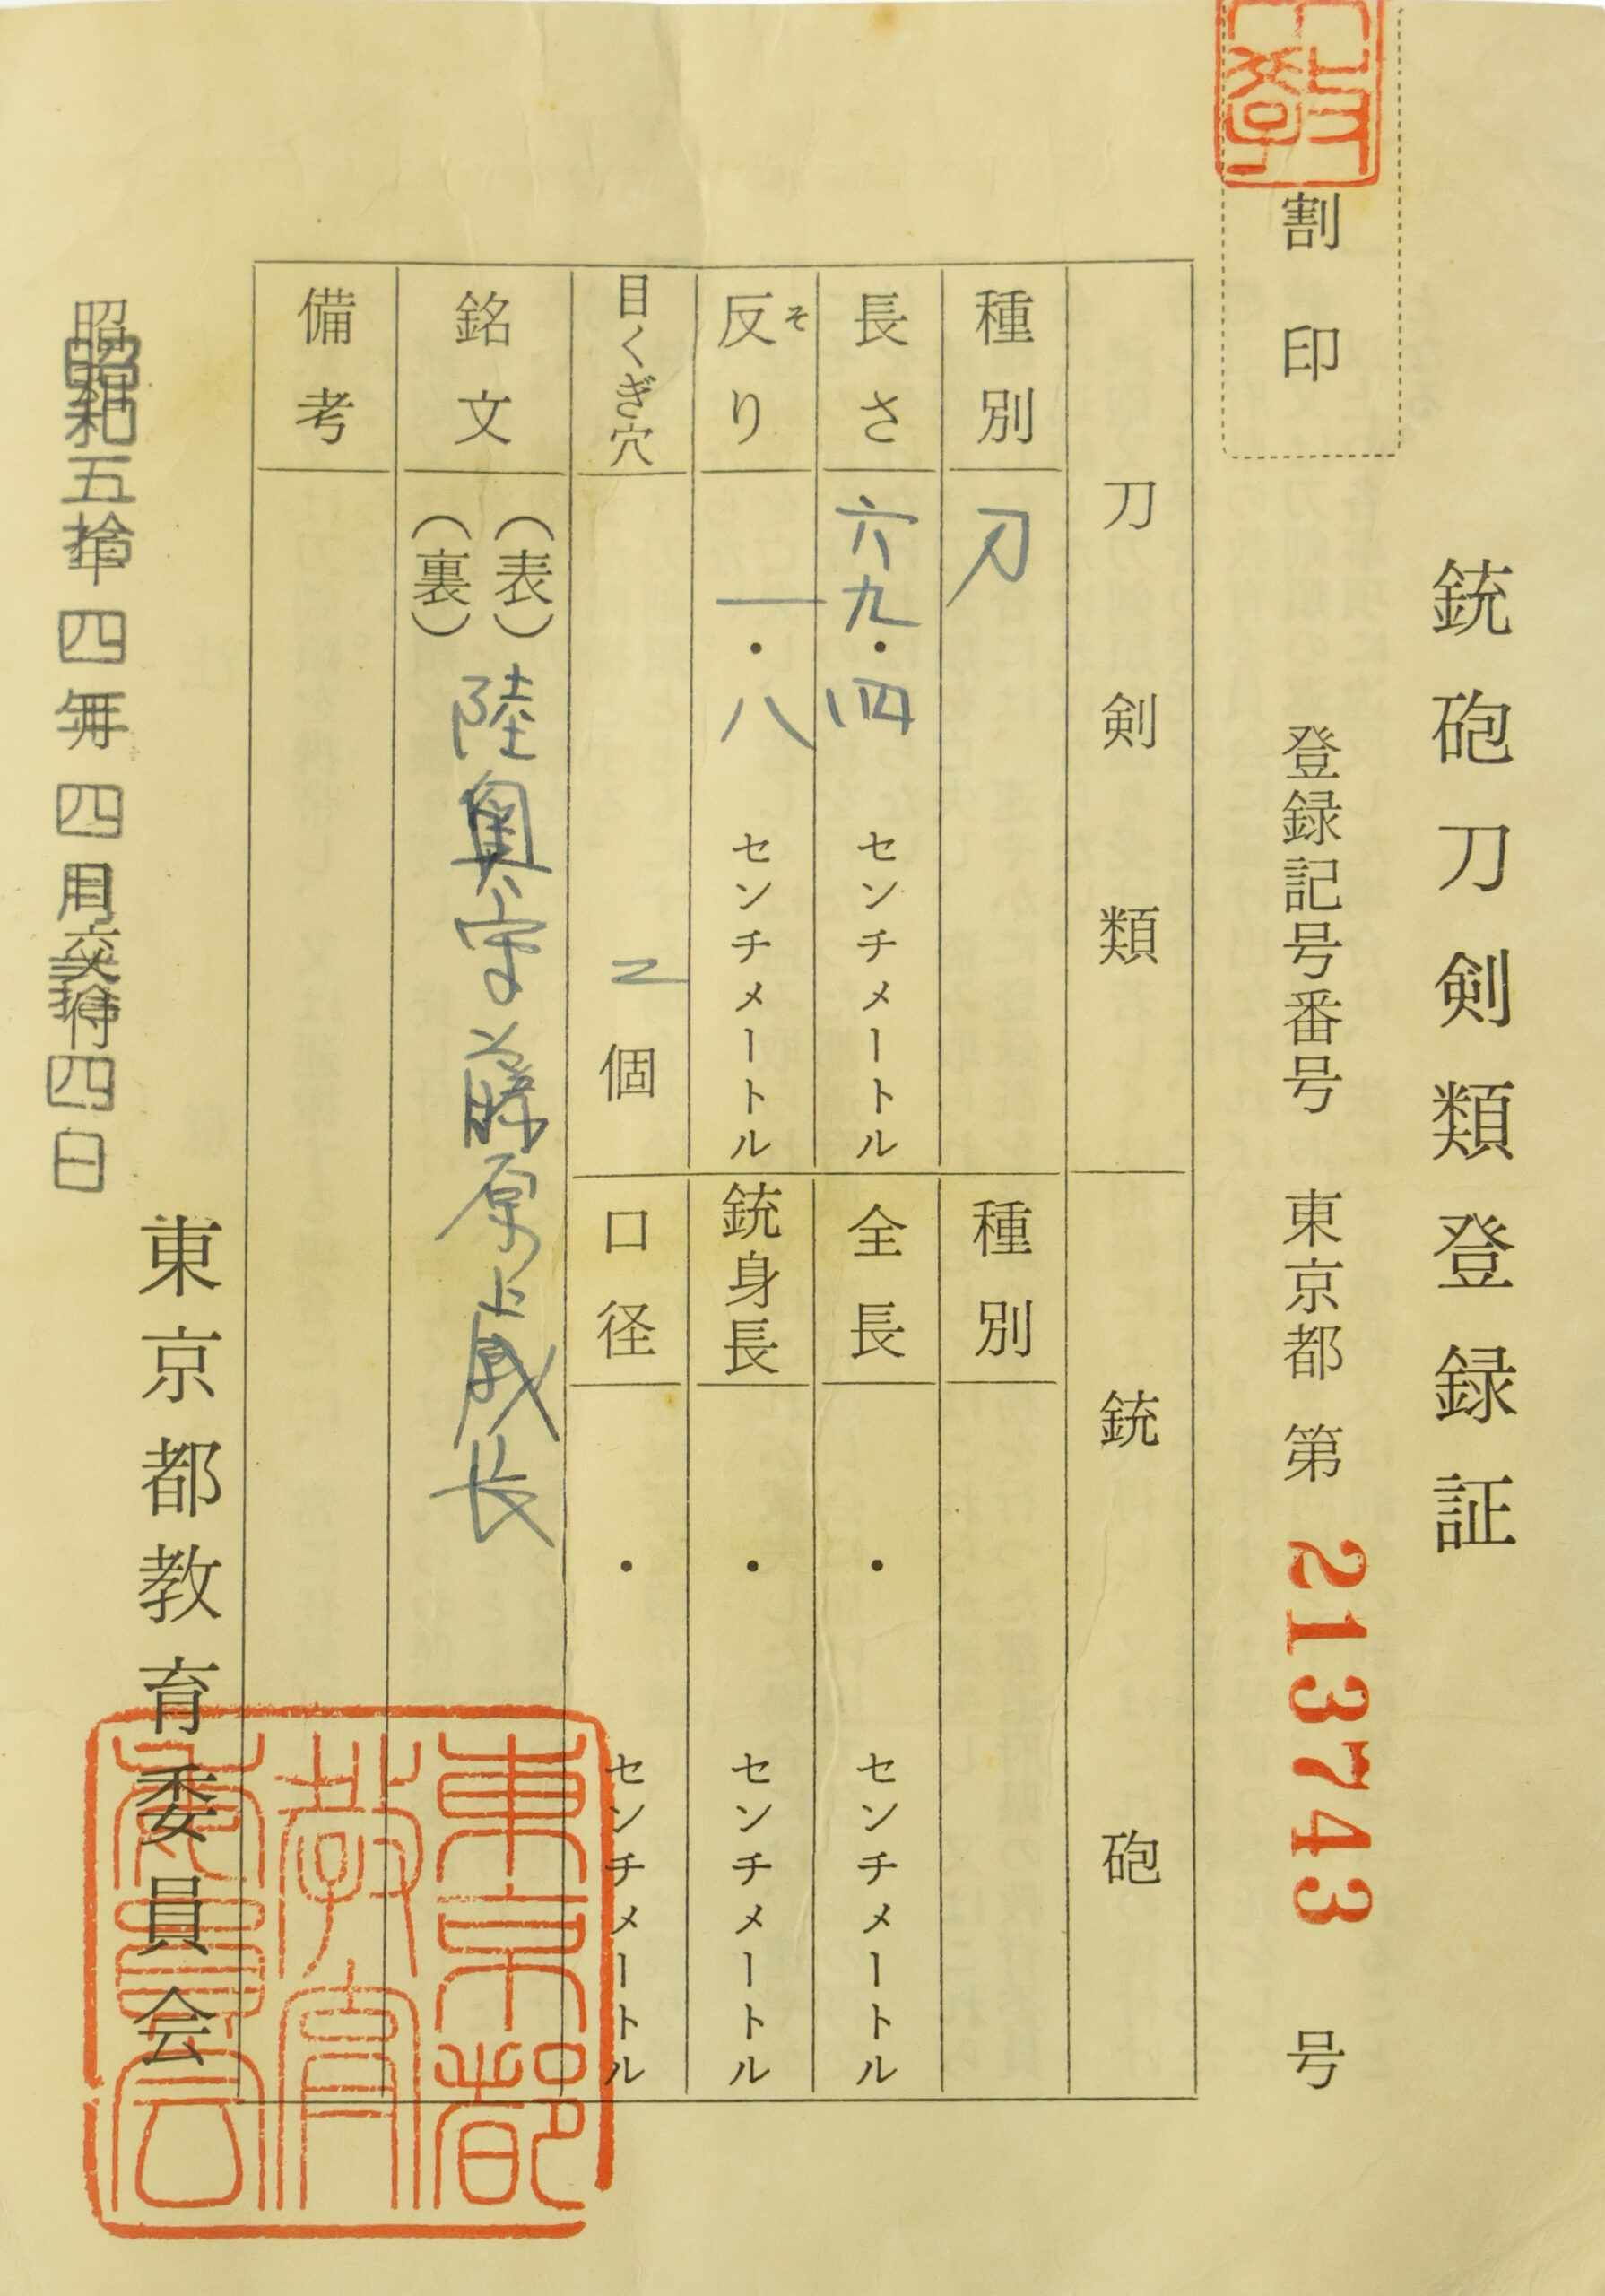 銃砲刀剣類登録証
割印
登録記号番号 東京都 第 213743 号
刀剣類
銃砲
種別 刀
長さ 六九・四 センチメートル
反り そ 一・八 センチメートル
目くぎ穴 二個
種別
全長 ・ センチメートル
銃身長 ・ センチメートル
口径 ・ センチメートル
銘文 (表) 陸奥守藤原 長
(裏)
備考
昭和五拾四年四月 四日
東京都教育委員会
東京都
教育
委員会